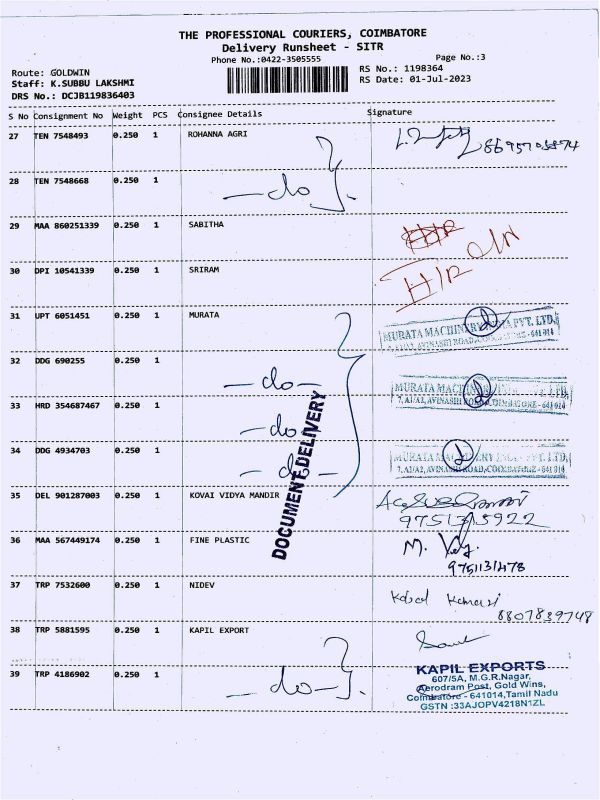 THE PROFESSIONAL COURIERS, COIMBATORE
Delivery Runsheet - SITR
Phone No.:0422-3505555 Page No.:3
Route: GOLDWIN RS No.: 1198364
Staff: K.SUBBU LAKSHMI RS Date: 01-Jul-2023
DRS No.: DCJB119836403
S No Consignment No Weight PCS Consignee Details Signature
27 TEN 7548493 0.250 1 ROHANNA AGRI
28 TEN 7548668 0.250 1 -do-
29 MAA 860251339 0.250 1 SABITHA
30 DPI 10541339 0.250 1 SRIRAM
31 UPT 6051451 0.250 1 MURATA
MURATA MACHINERY INDIA PVT. LTD.
32 DDG 690255 0.250 1 -do-
33 HRD 354687467 0.250 1 -do-
34 DDG 4934703 0.250 1 -do-
DOCUMENT DELIVERY
35 DEL 901287003 0.250 1 KOVAI VIDYA MANDIR
9751315922
36 MAA 567449174 0.250 1 FINE PLASTIC M.
9751131478
37 TRP 7532600 0.250 1 NIDEV
8807839748
38 TRP 5881595 0.250 1 KAPIL EXPORT
39 TRP 4186902 0.250 1 -do-
KAPIL EXPORTS
607/5A, M.G.R.Nagar,
Aerodram Post, Gold Wins,
Coimbatore - 641014,Tamil Nadu
GSTN :33AJOPV4218N1ZL